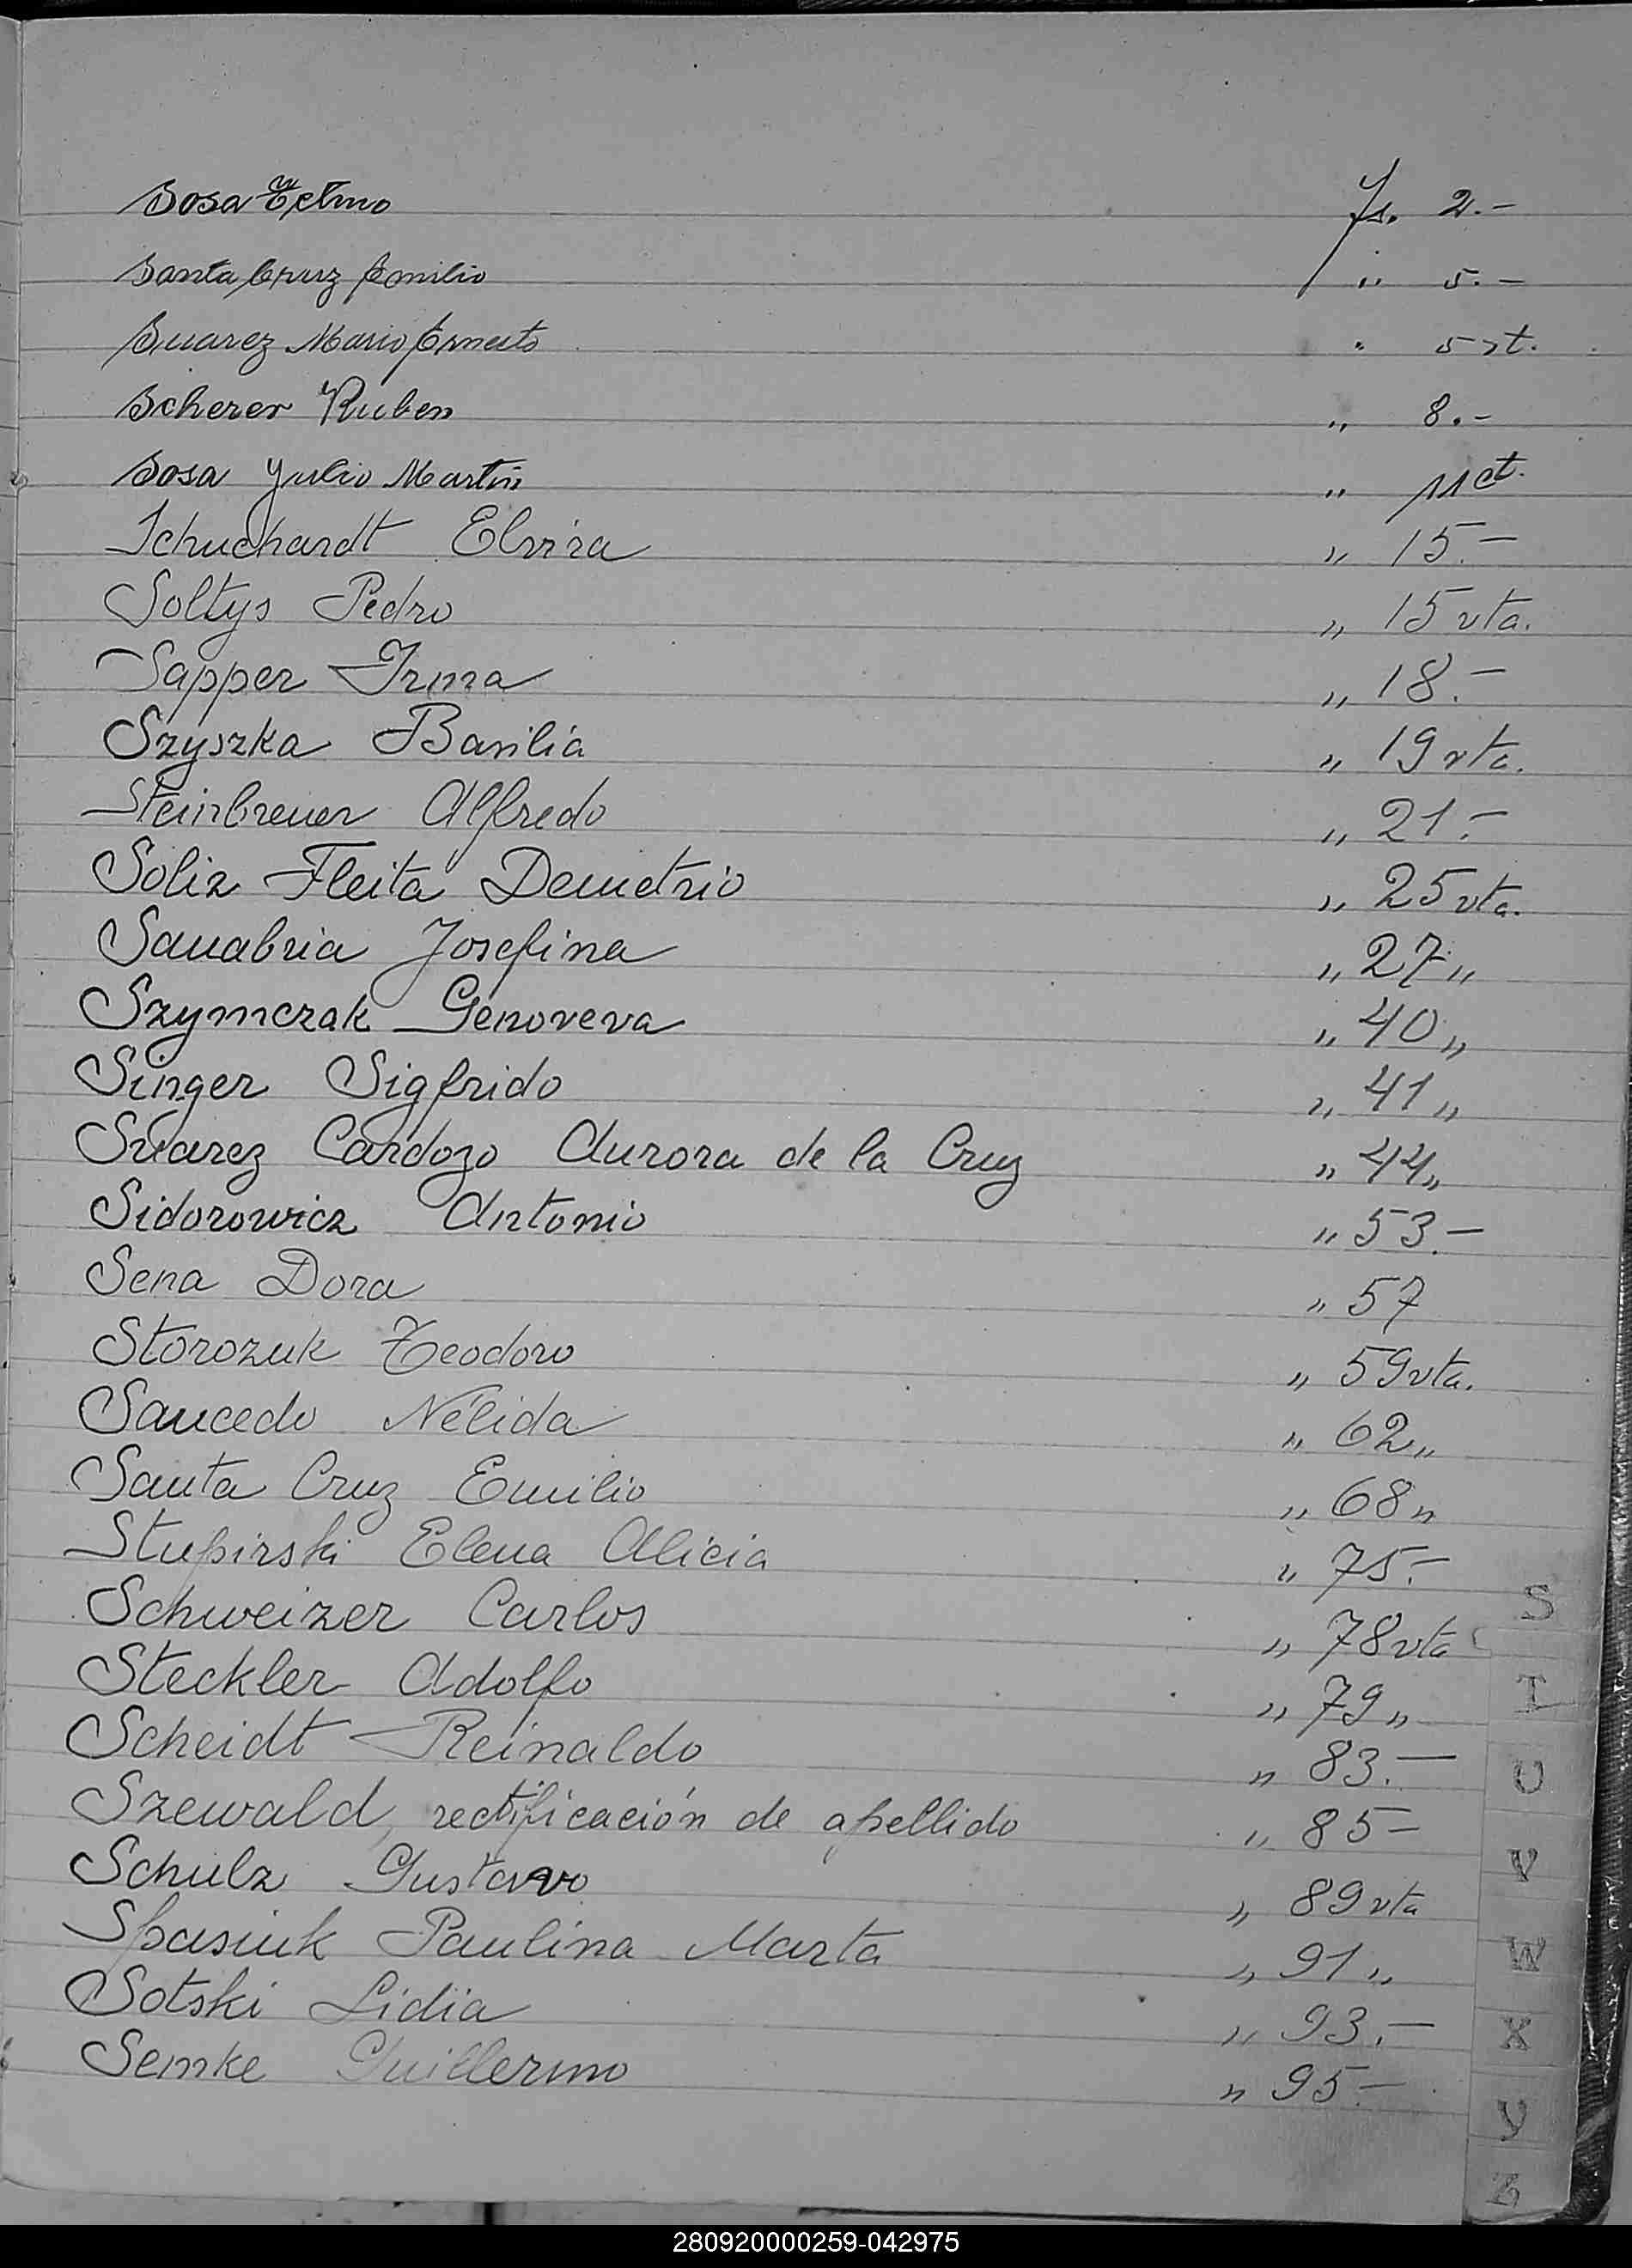 Sosa Telmo Fs. 2.-
Santa Cruz Emilio " 5.-
Suarez Mario Ernesto " 5 vt.
Scherer Ruben " 8.-
Sosa Julio Martin " 11 vt.
Schuchardt Elvira " 15.-
Soltys Pedro " 15 vta.
Sapper Irma " 18.-
Szyszka Basilia " 19 vta.
Steinbrener Alfredo " 21.-
Soliz Fleita Demetrio " 25 vta.
Sanabria Josefina " 27 "
Szymczak Genoveva " 40 "
Singer Sigfrido " 41 "
Suarez Cardozo Aurora de la Cruz " 44 "
Sidorowicz Antonio " 53.-
Sena Dora " 57
Storozuk Teodoro " 59 vta.
Saucedo Nélida " 62 "
Santa Cruz Emilio " 68 "
Stupirski Elena Alicia " 75.-
Schweizer Carlos " 78 vta
Steckler Adolfo " 79 "
Scheidt Reinaldo " 83.-
Szewald, rectificación de apellido " 85-
Schulz Gustavo " 89 vta
Spasiuk Paulina Marta " 91 "
Sotski Lidia " 93.-
Semke Guillermo " 95.-
S
T
U
V
W
X
Y
Z
280920000259-042975